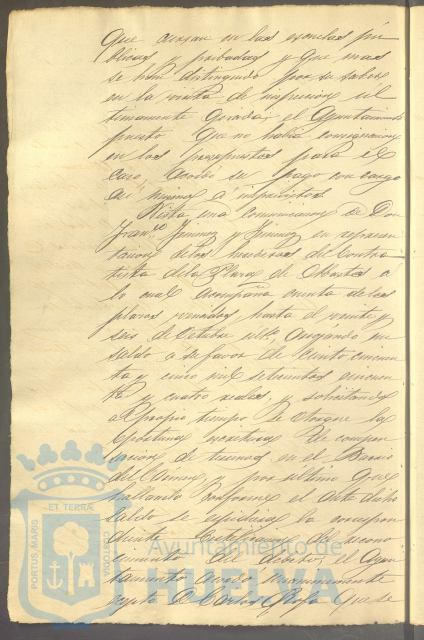 que cursan en las escuelas pú-
blicas y privadas y que mas
se han distinguido por su saber
en la visita de inspeccion ul-
timamente girada; el Ayuntamiento
puesto que no habia consignacion
en los presupuestos para el
caso, acordó su pago con cargo
al mismo a imprevistos
Vista una comunicacion de Don
Fran.co Jimenez y Jimenez en represen
tacion de los herederos del contra
tista de la Plaza de Abastos a
la cual acompaña cuenta de los
plazos vencidos hasta el veinte y
seis de Octubre ult.o, arrojando un
saldo a su favor de ciento cincuen
ta y cinco mil setecientos cincuen
ta y cuatro reales, y solicitando
al propio tiempo se otorgue la
oportuna escritura de compen
sacion de terrenos en el Barrio
del y por último que
hallando conforme el dicho
saldo se expida la correspon
diente de recono
cimiento del debito; el Ayun
tamiento acordó unanimemente
D. Carlos que se
PORTUS MARIS
ET TERRÆ
CUSTODIA
Ayuntamiento de
HUELVA